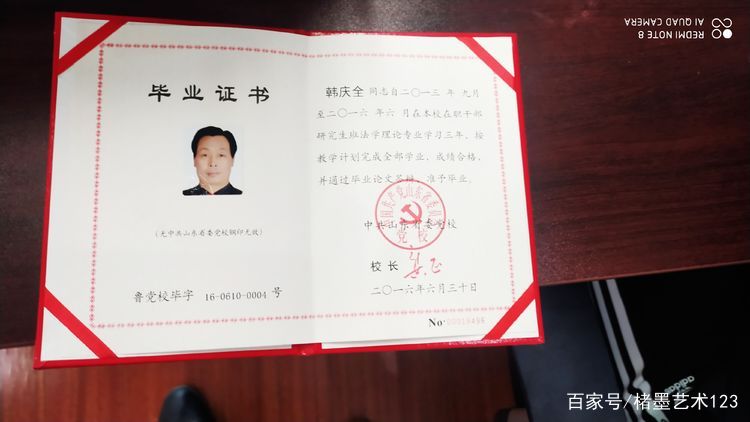 REDMI NOTE 8
AI QUAD CAMERA
毕业证书
(无中共山东省委党校钢印无效)
鲁党校毕字 16-0610-0004 号
韩庆全 同志自二〇一三 年 九月
至二〇一六 年 六 月在本校在职干部
研究生班法学理论专业学习三年,按
教学计划完成全部学业,成绩合格,
并通过毕业论文答辩,准予毕业。
中国共产党山东省委员会
党校
中共山东省委党校
校 长
二〇一六年六月三十日
No
adidas
百家号/楮墨艺术123